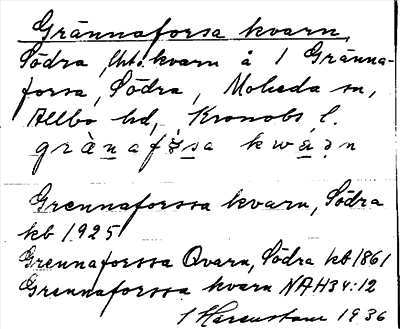 Grännaforsa kvarn,
Södra, kvarn å 1 Gränna-
forsa, Södra, Moheda sn,
Allbo hd, Kronobs l.
grànafɔ̀sa kwàṇ
Grennaforssa kvarn, Södra
kb 1925
Grennaforssa Qvarn, Södra kb 1861
Grennaforssa kvarn NAH34:12
1936